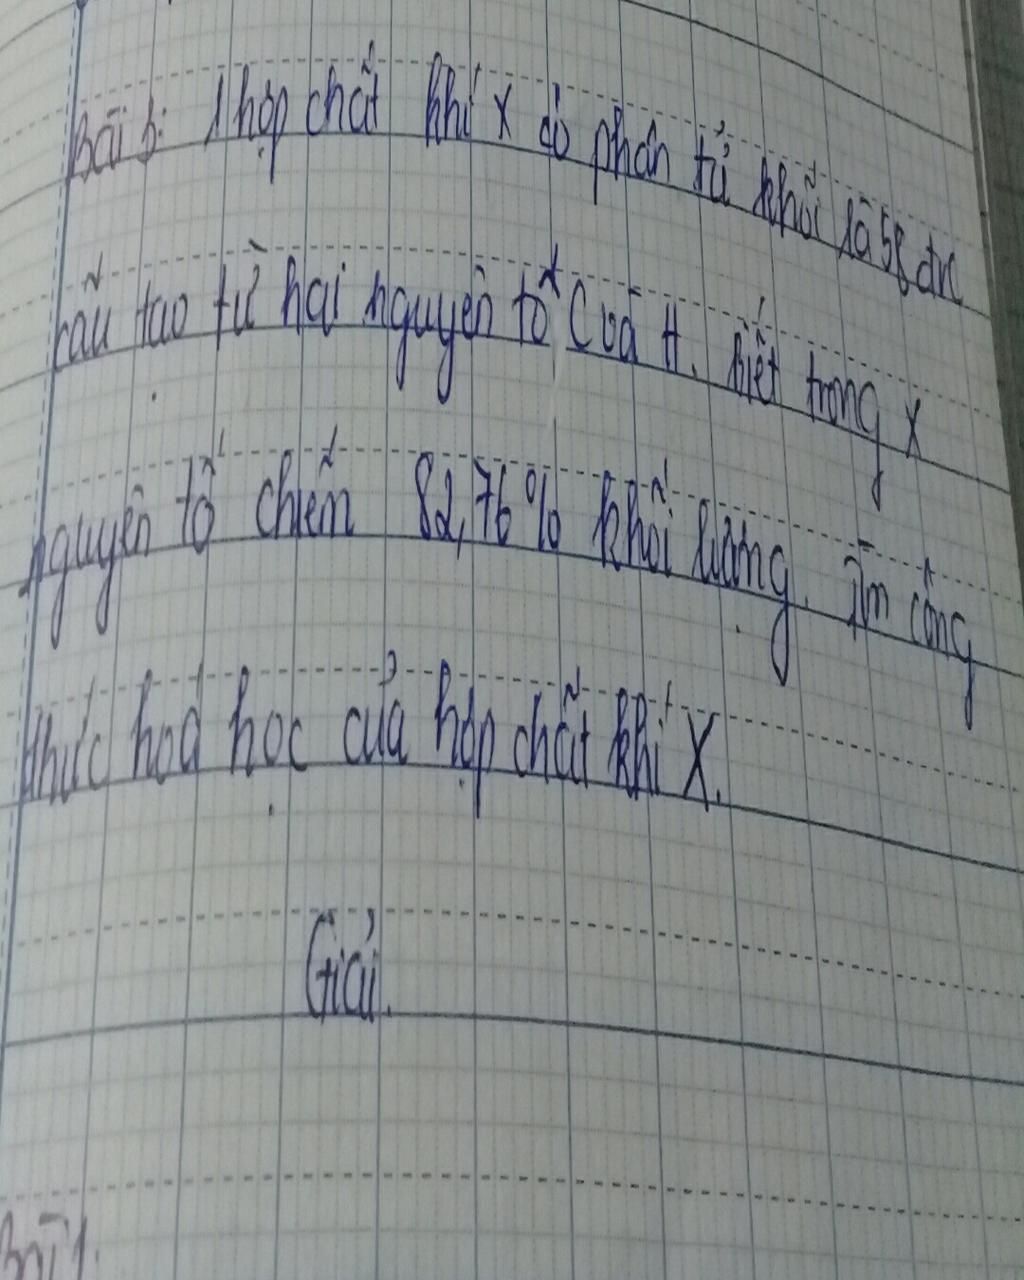 Bài 3: 1 hợp chất khí X có phân tử khối là 58 đvc
cấu tạo từ hai nguyên tố C và H. Biết trong X
nguyên tố chiếm 82,76% khối lượng. Tìm công
thức hoá học của hợp chất khí X.
Giải.
Bài 1.